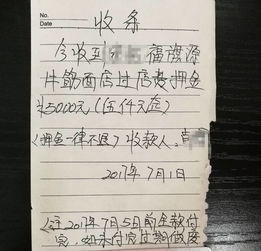 No.
Date
收条
今收到 福隆源
牛筋面店过店费押金
¥5000元(伍仟元㊣)
(押金一律不退)收款人:
2017年7月1日
(注2017年7月5日前全款付
完,如未付完过期做废